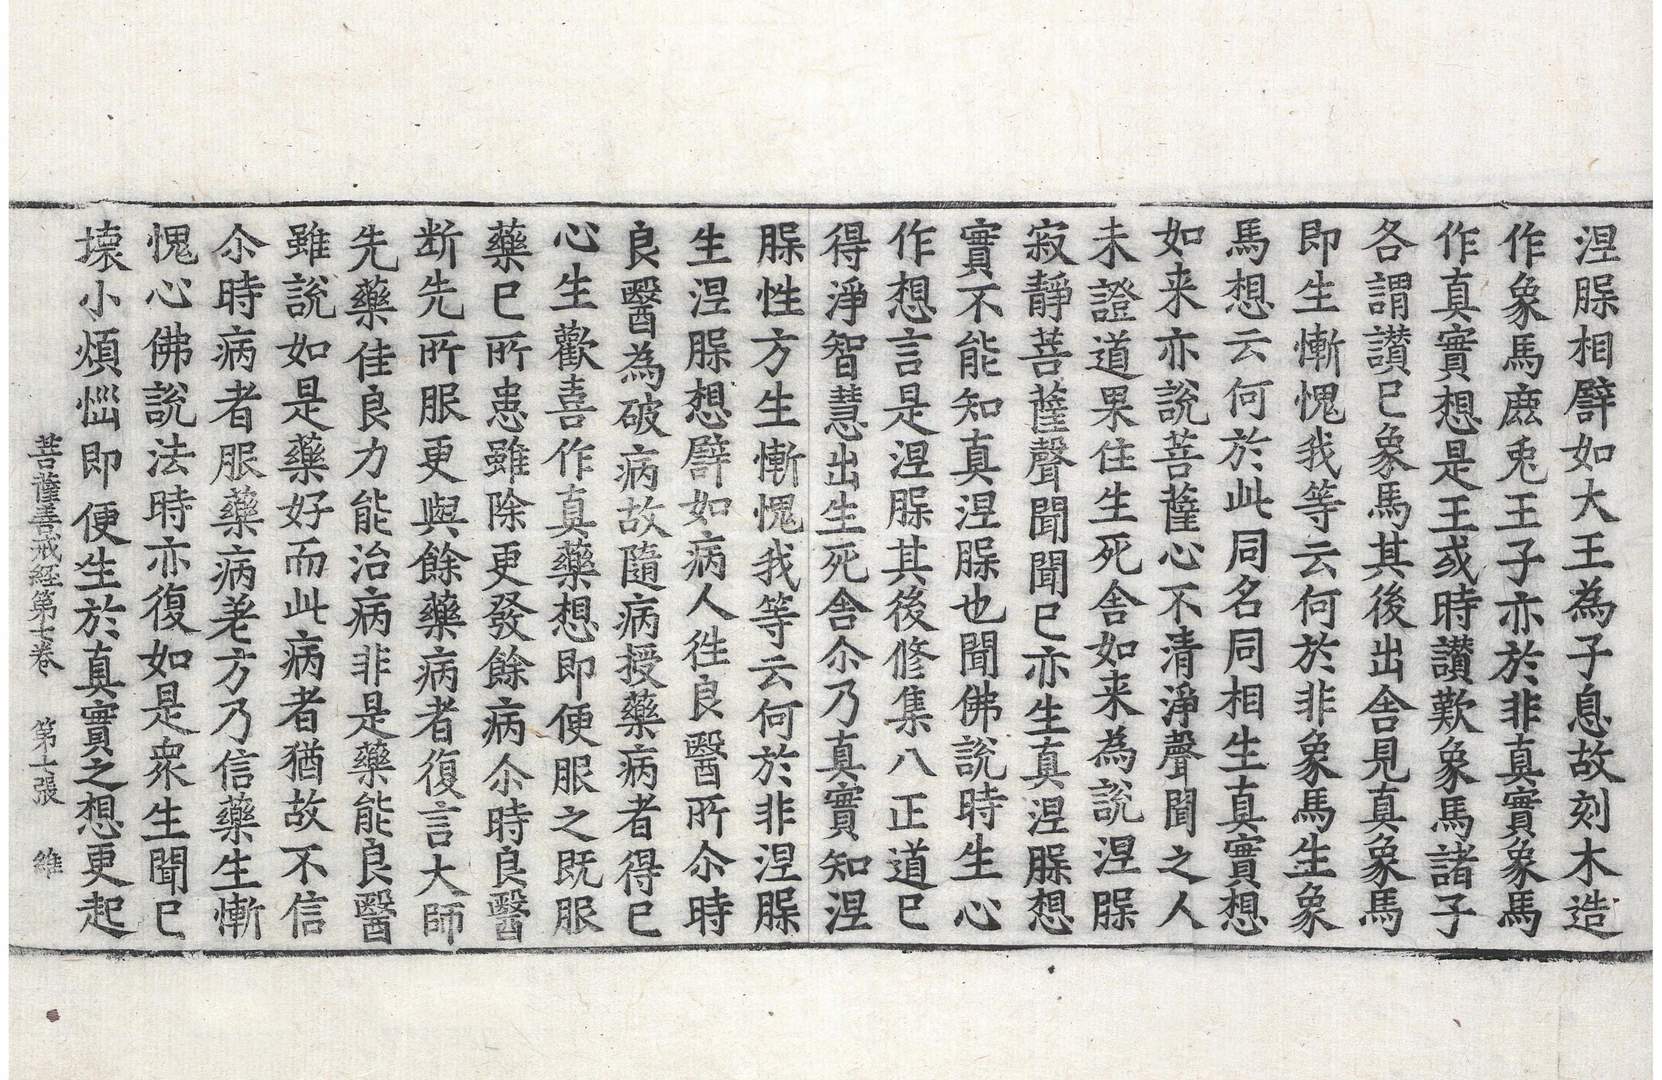 涅槃相譬如大王為子息故刻木造
作象馬鹿兎王子亦於非真實象馬
作真實想是王或時讃歎象馬諸子
各謂讃已象馬其後出舍見真象馬
即生慚愧我等云何於非象馬生象
馬想云何於此同名同相生真實想
如来亦說菩薩心不清淨聲聞之人
未證道果住生死舍如来為說涅槃
寂靜菩薩聲聞聞已亦生真涅槃想
實不能知真涅槃也聞佛說時生心
作想言是涅槃其後修集八正道已
得淨智慧出生死舍尒乃真實知涅
槃性方生慚愧我等云何於非涅槃
生涅槃想譬如病人徃良醫所尒時
良醫為破病故隨病授藥病者得已
心生歡喜作真藥想即便服之既服
藥已所患雖除更發餘病尒時良醫
断先所服更與餘藥病者復言大師
先藥佳良力能治病非是藥能良醫
雖說如是藥好而此病者猶故不信
尒時病者服藥病差方乃信藥生慚
愧心佛說法時亦復如是衆生聞已
壞小煩惱即便生於真實之想更起
菩薩善戒経第七卷　第七張　維